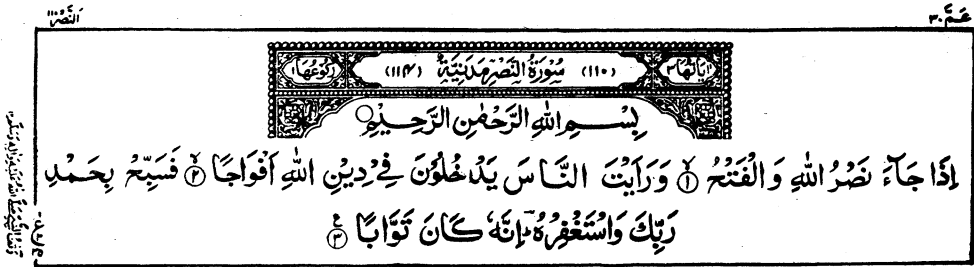 عَمَّ ٣٠
النَّصْر ١١٠
اٰيَاتُهَا ٣ (١١٠) سُوْرَةُ النَّصْرِ مَدَنِيَّةٌ (١١٤) رُكُوْعُهَا ١
بِسْمِ اللّٰهِ الرَّحْمٰنِ الرَّحِيْمِ
اِذَا جَآءَ نَصْرُ اللّٰهِ وَالْفَتْحُ ۙ﴿١﴾ وَرَاَيْتَ النَّاسَ يَدْخُلُوْنَ فِيْ دِيْنِ اللّٰهِ اَفْوَاجًا ۙ﴿٢﴾ فَسَبِّحْ بِحَمْدِ
رَبِّكَ وَاسْتَغْفِرْهُ ؕ اِنَّهٗ كَانَ تَوَّابًا ﴿٣﴾ ع